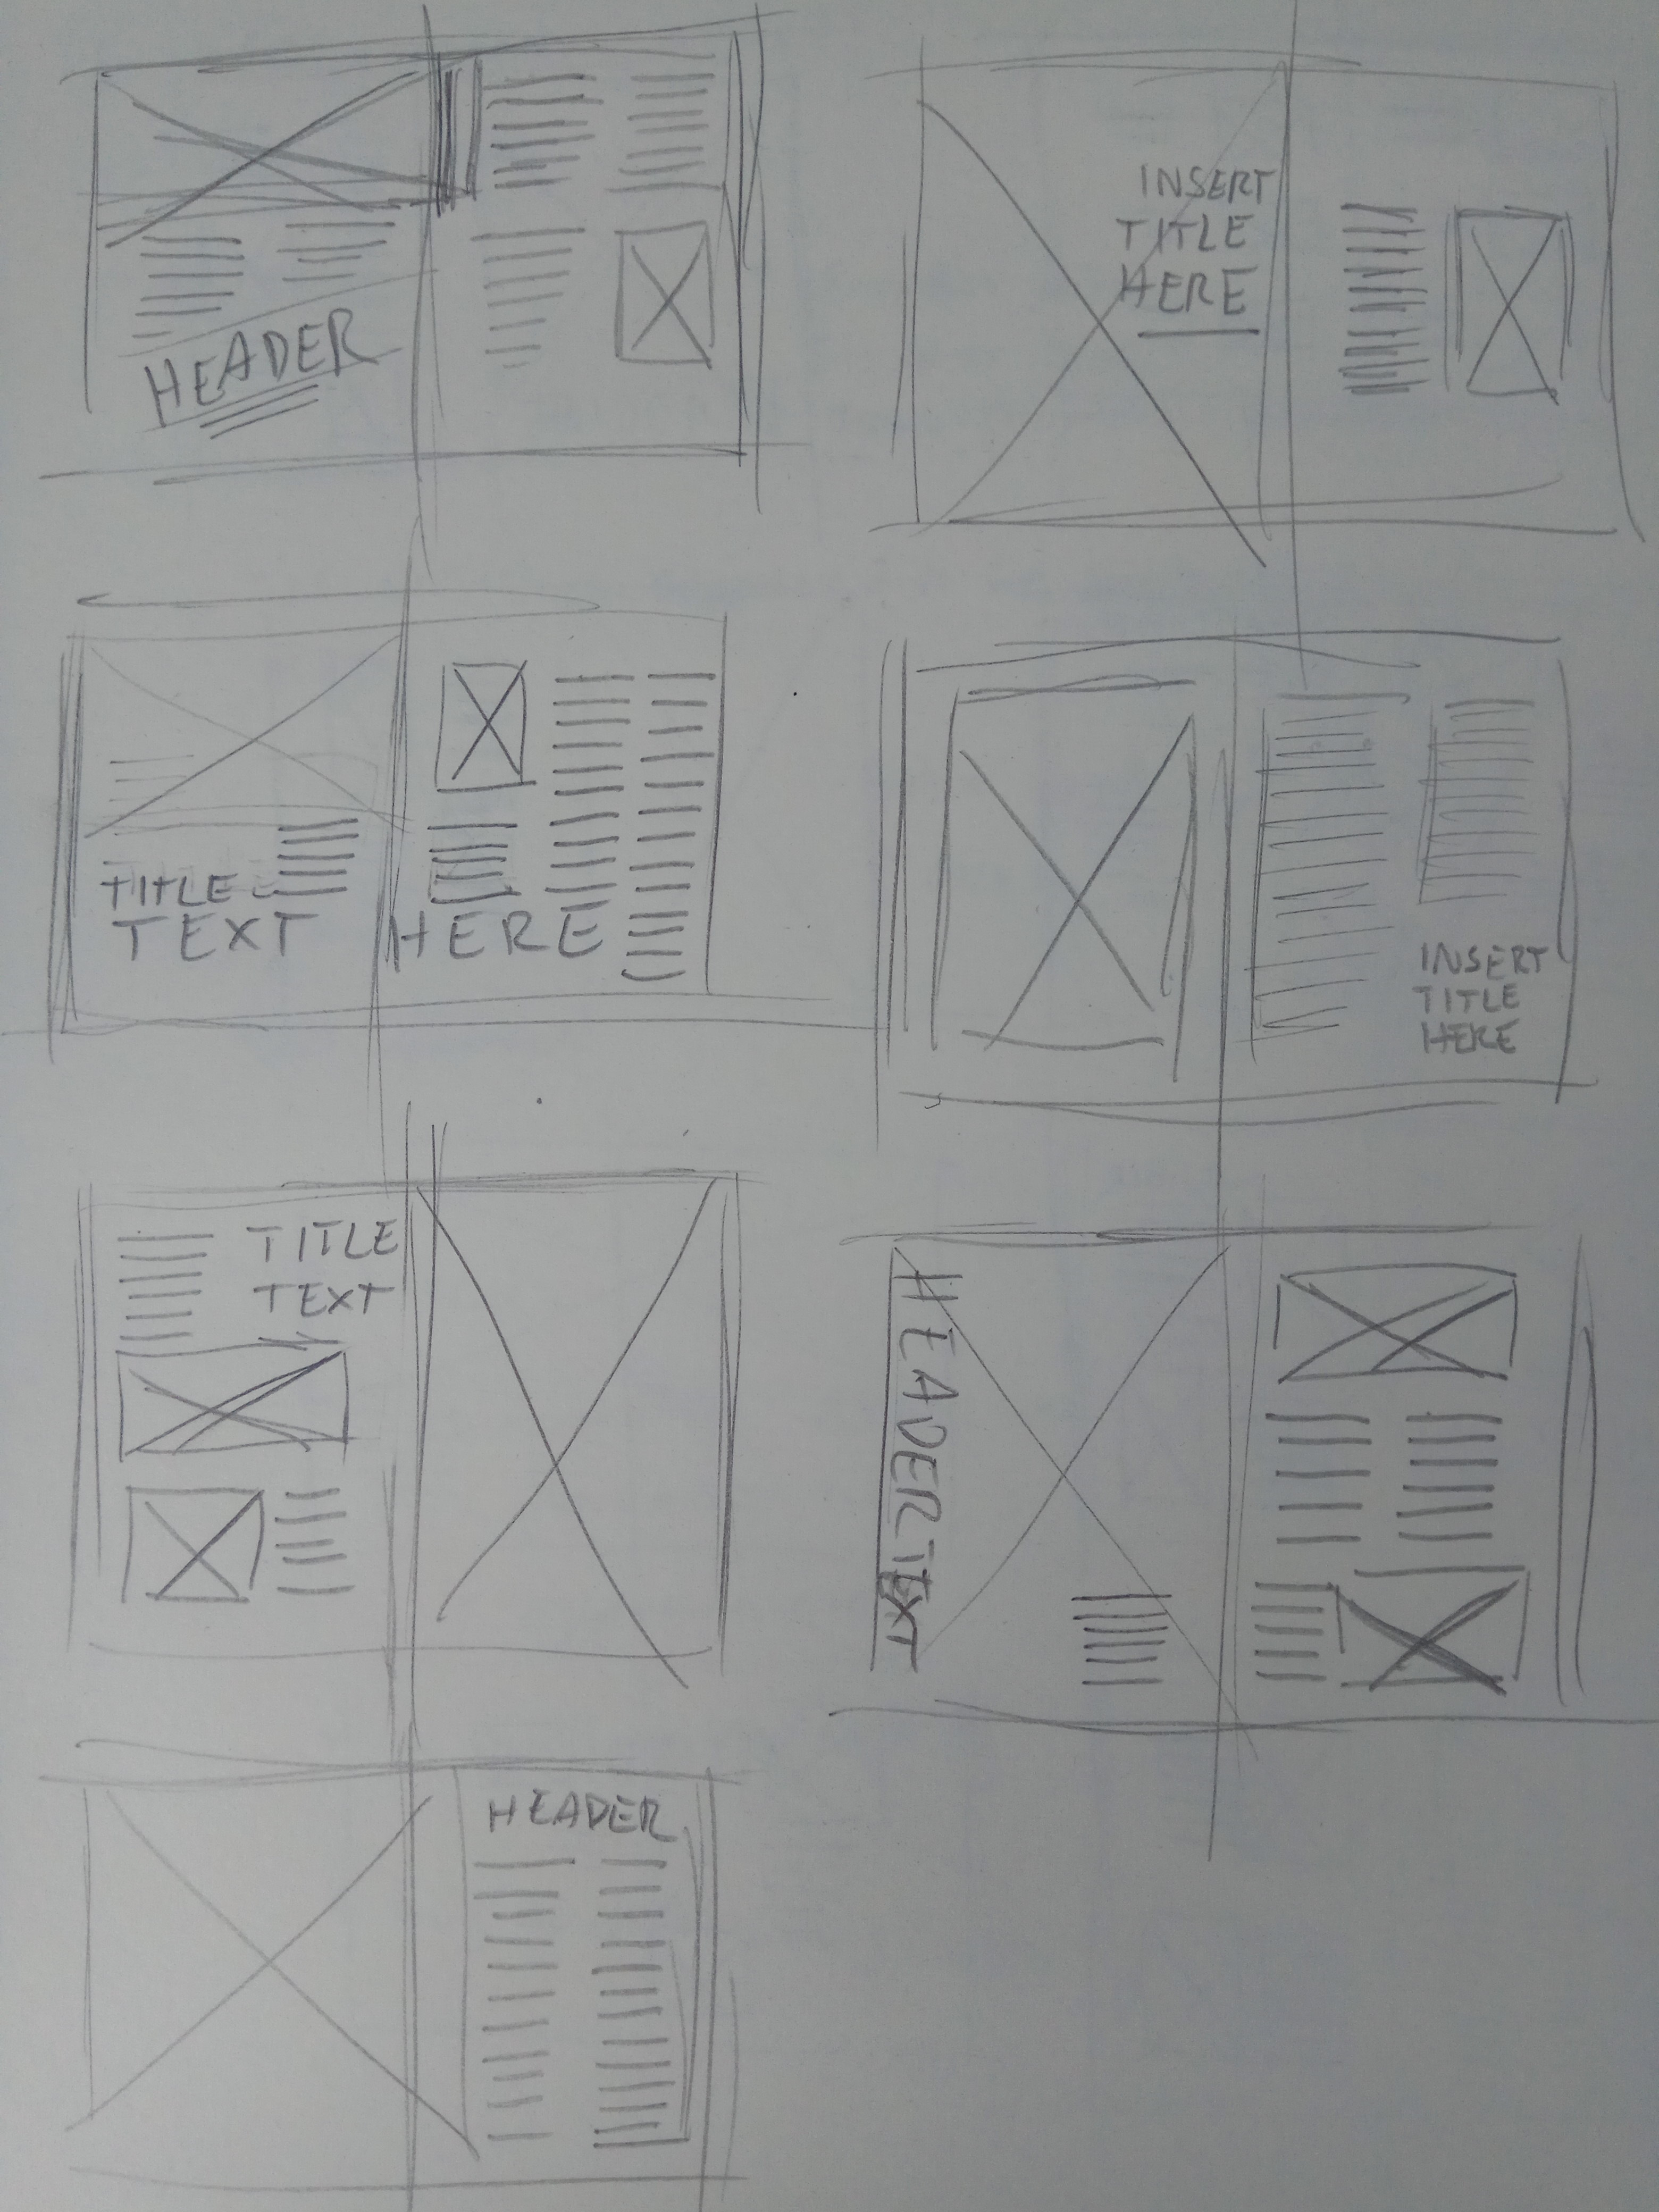 HEADER
INSERT
TITLE
HERE
TITLE
TEXT HERE
INSERT
TITLE
HERE
TITLE
TEXT
HEADER TEXT
HEADER